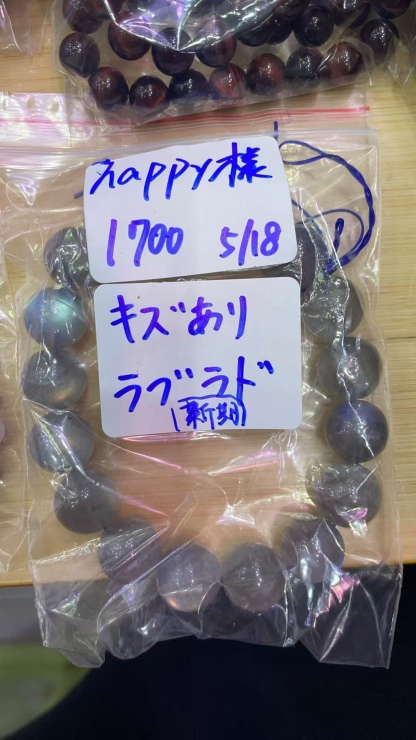 happy様
1700 5/18
キズあり
ラブラド
(新期)